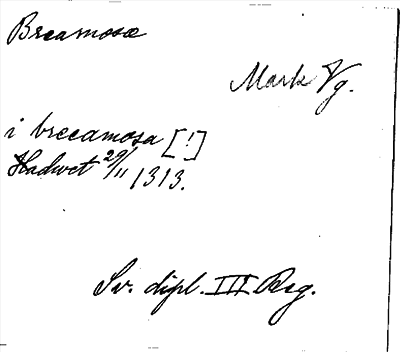 Breamosæ
Mark Vg.
i breeamosa [!]
Hadwet 29/11 1313.
Sv. dipl. III Reg.